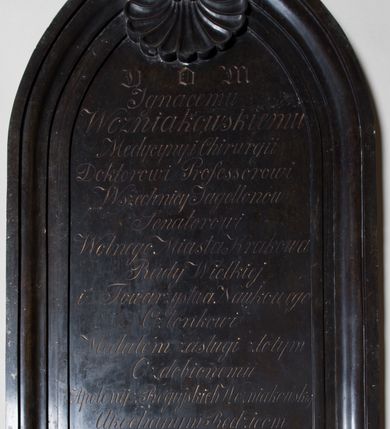 D O M
Ignacemu
Woźniakowskiemu
Medycyny i Chirurgii
Doktorowi Professorowi
Wszechnicy Jagellońs:
Senatorowi
Wolnego Miasta Krakowa
Rady Wielkiej
i Towarzystwa Naukowego
Członkowi
Medalem zasługi złotym
Ozdobionemu
Woźniakowski
Ukochanym Rodzicom